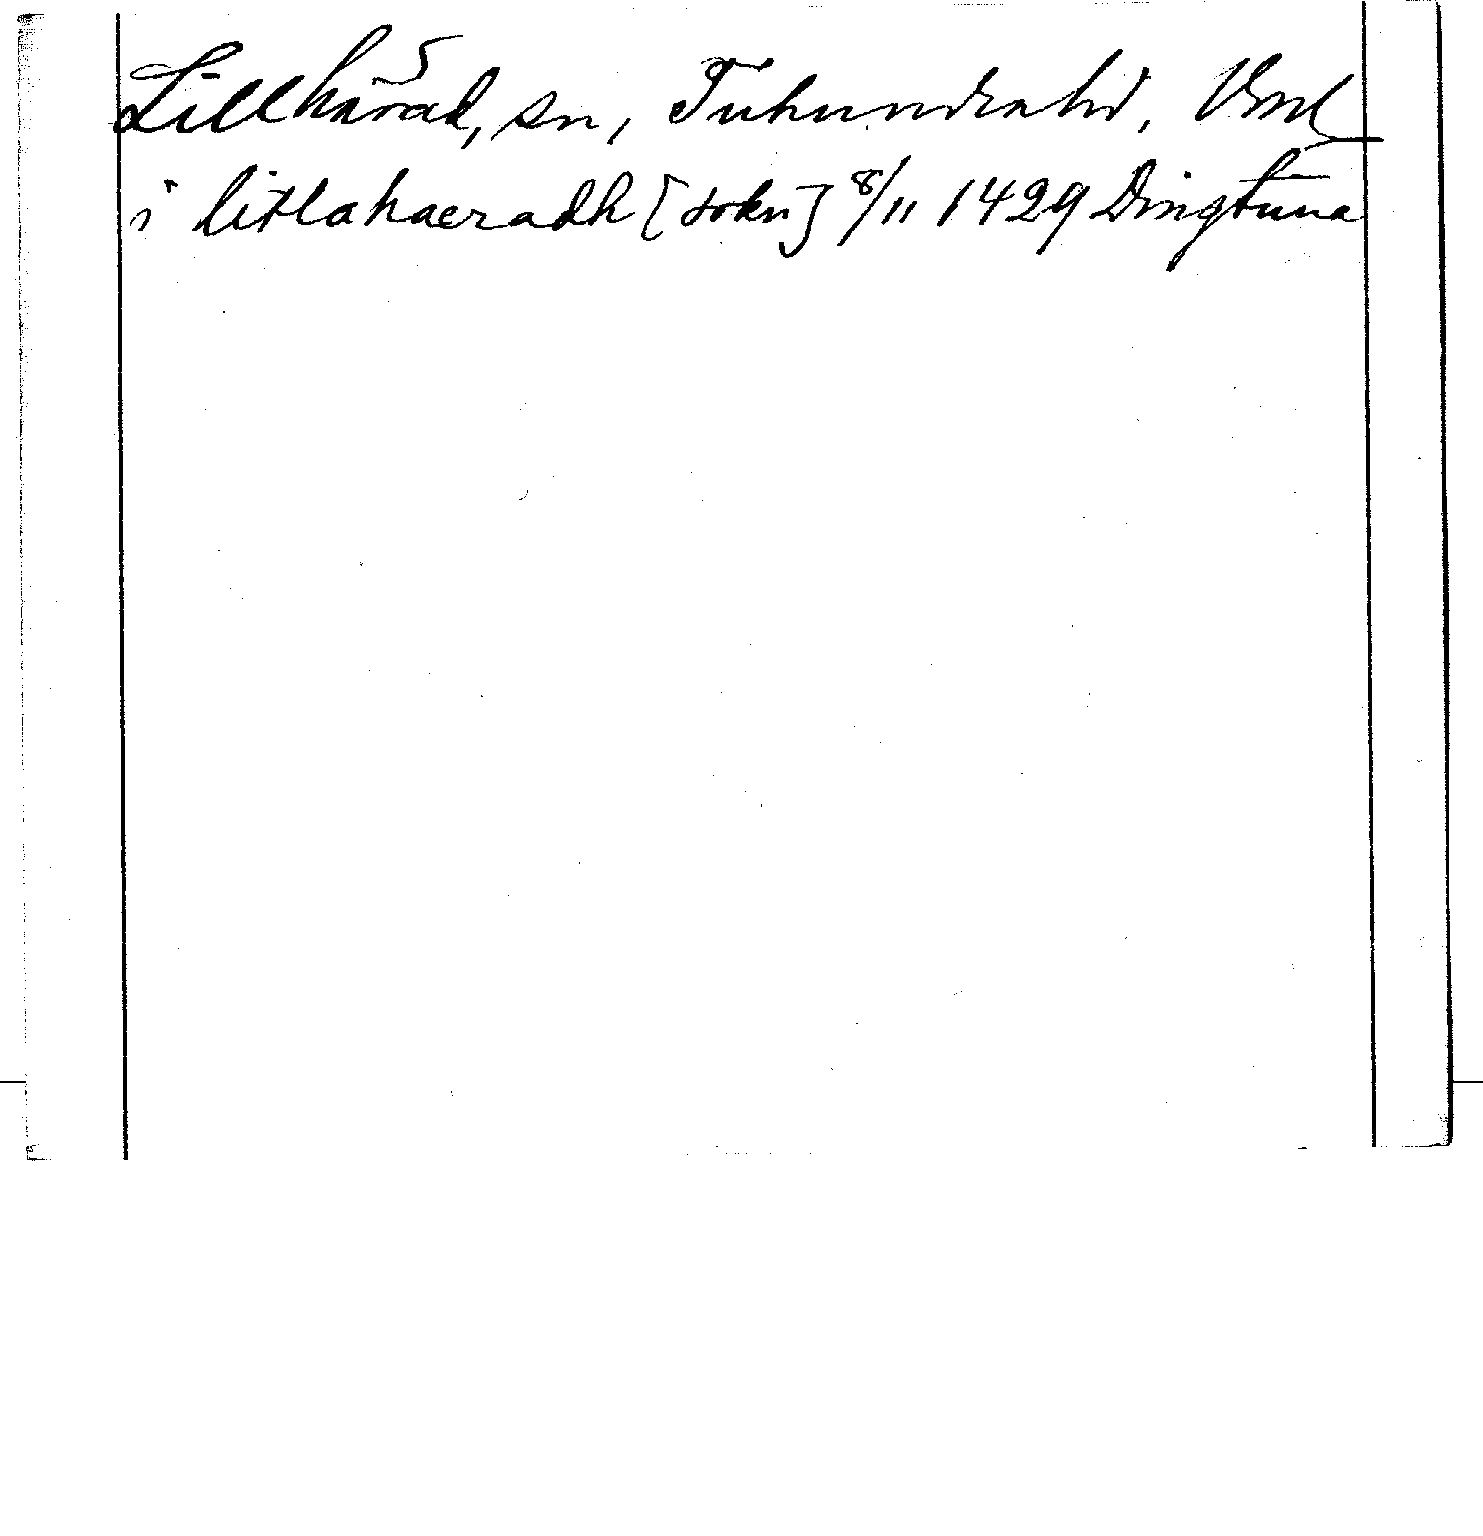 Lillhärad, sn, Tuhundrahd, Vsml
i litlahaeradh [sokn] 8/11 1429 Dingtuna